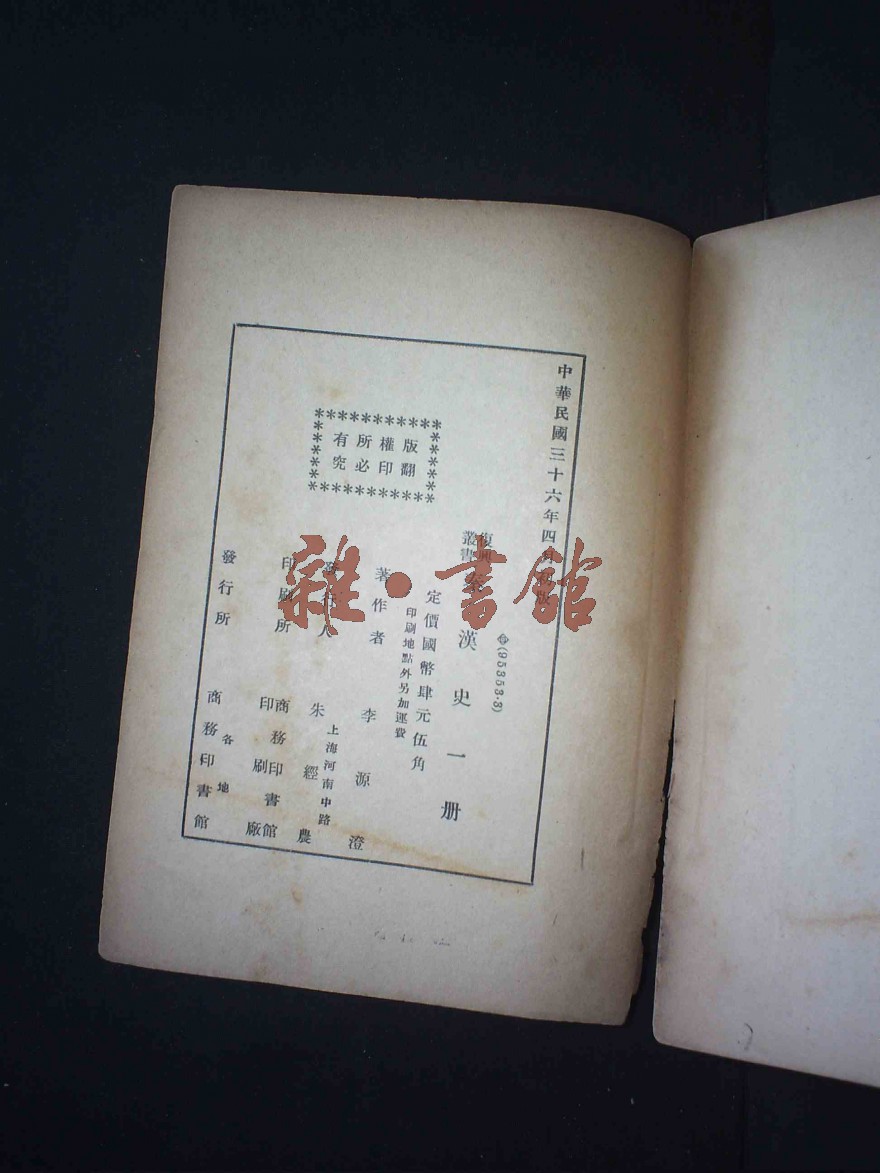 中華民國三十六年四月初版
(95353·3)
復興叢書
秦漢史一册
定價國幣肆元伍角
印刷地點外另加運費
著作者 李源澄
上海河南中路
發行人 朱經農
印刷所 商務印書館印刷廠
發行所 各地商務印書館
版權所有
翻印必究
雜·書館